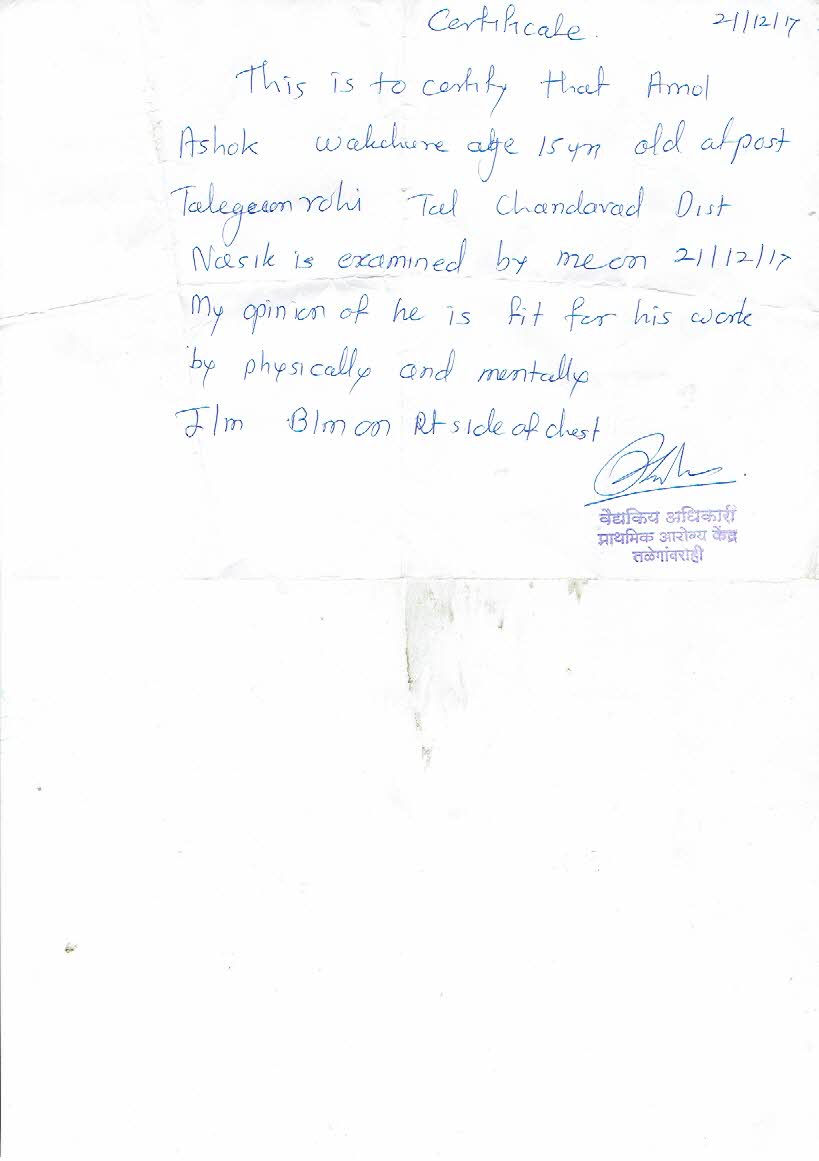 Certificate. 21/12/17
This is to certify that Amol
Ashok wakchure age 15 yrs old at post
Talegaonrohi Tal Chandavad Dist
Nasik is examined by me on 21/12/17
My opinion of he is fit for his work
by physically and mentally
I/m B/m on Rt side of chest
वैद्यकिय अधिकारी
प्राथमिक आरोग्य केंद्र
तळेगांवरोही